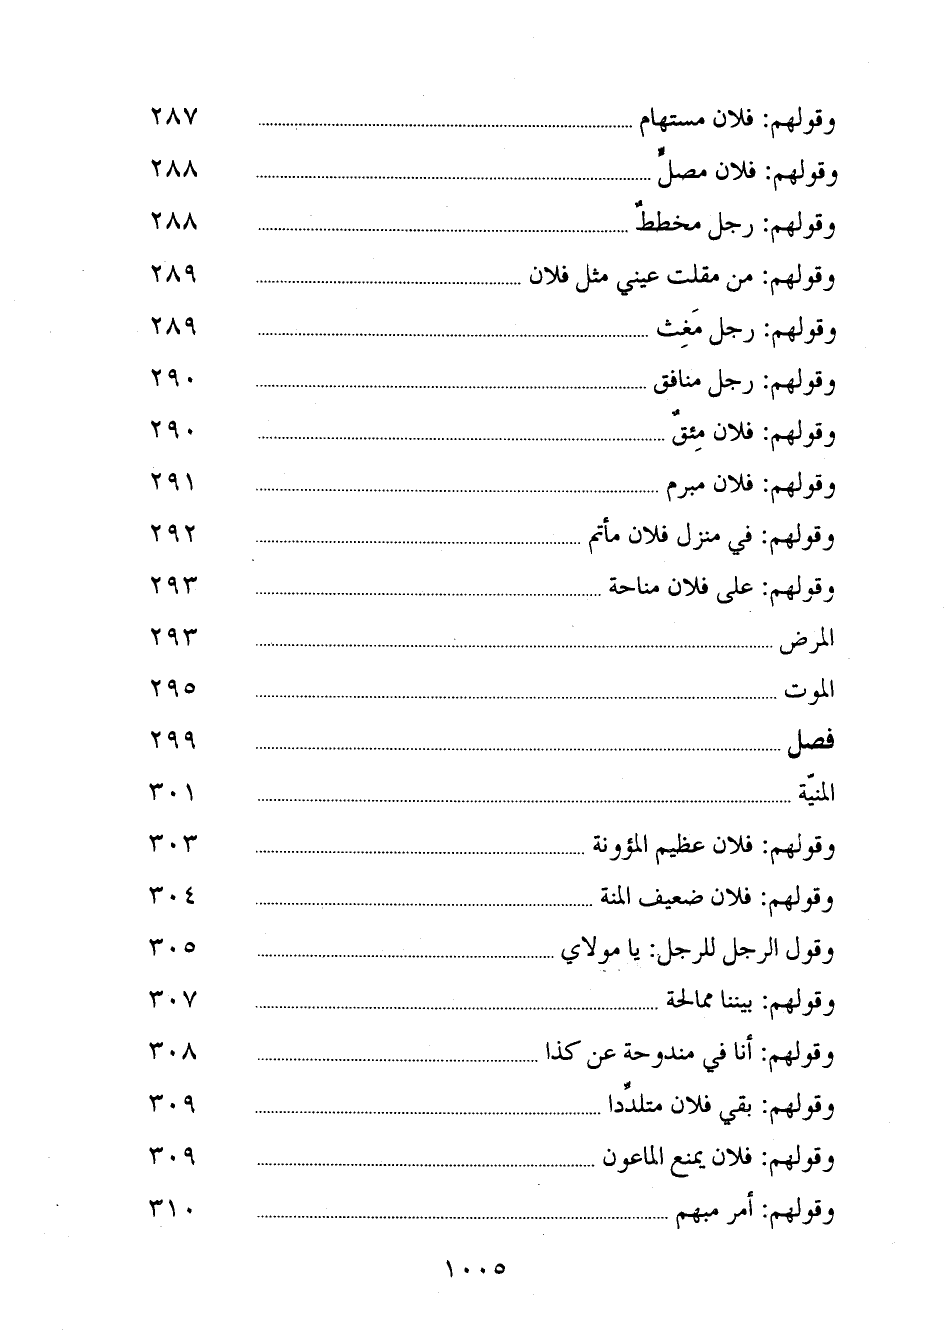 وقولهم: فلان مستهام ........ ٢٨٧
وقولهم: فلان مصلٌّ ........ ٢٨٨
وقولهم: رجل مخططٌ ........ ٢٨٨
وقولهم: من مقلت عيني مثل فلان ........ ٢٨٩
وقولهم: رجل مَغِث ........ ٢٨٩
وقولهم: رجل منافق ........ ٢٩٠
وقولهم: فلان مِئقٌ ........ ٢٩٠
وقولهم: فلان مبرم ........ ٢٩١
وقولهم: في منزل فلان مأتم ........ ٢٩٢
وقولهم: على فلان مناحة ........ ٢٩٣
المرض ........ ٢٩٣
الموت ........ ٢٩٥
فصل ........ ٢٩٩
المنيّة ........ ٣٠١
وقولهم: فلان عظيم المؤونة ........ ٣٠٣
وقولهم: فلان ضعيف المنة ........ ٣٠٤
وقول الرجل للرجل: يا مولاي ........ ٣٠٥
وقولهم: بيننا ممالحة ........ ٣٠٧
وقولهم: أنا في مندوحة عن كذا ........ ٣٠٨
وقولهم: بقي فلان متلدِّدا ........ ٣٠٩
وقولهم: فلان يمنع الماعون ........ ٣٠٩
وقولهم: أمر مبهم ........ ٣١٠
١٠٠٥